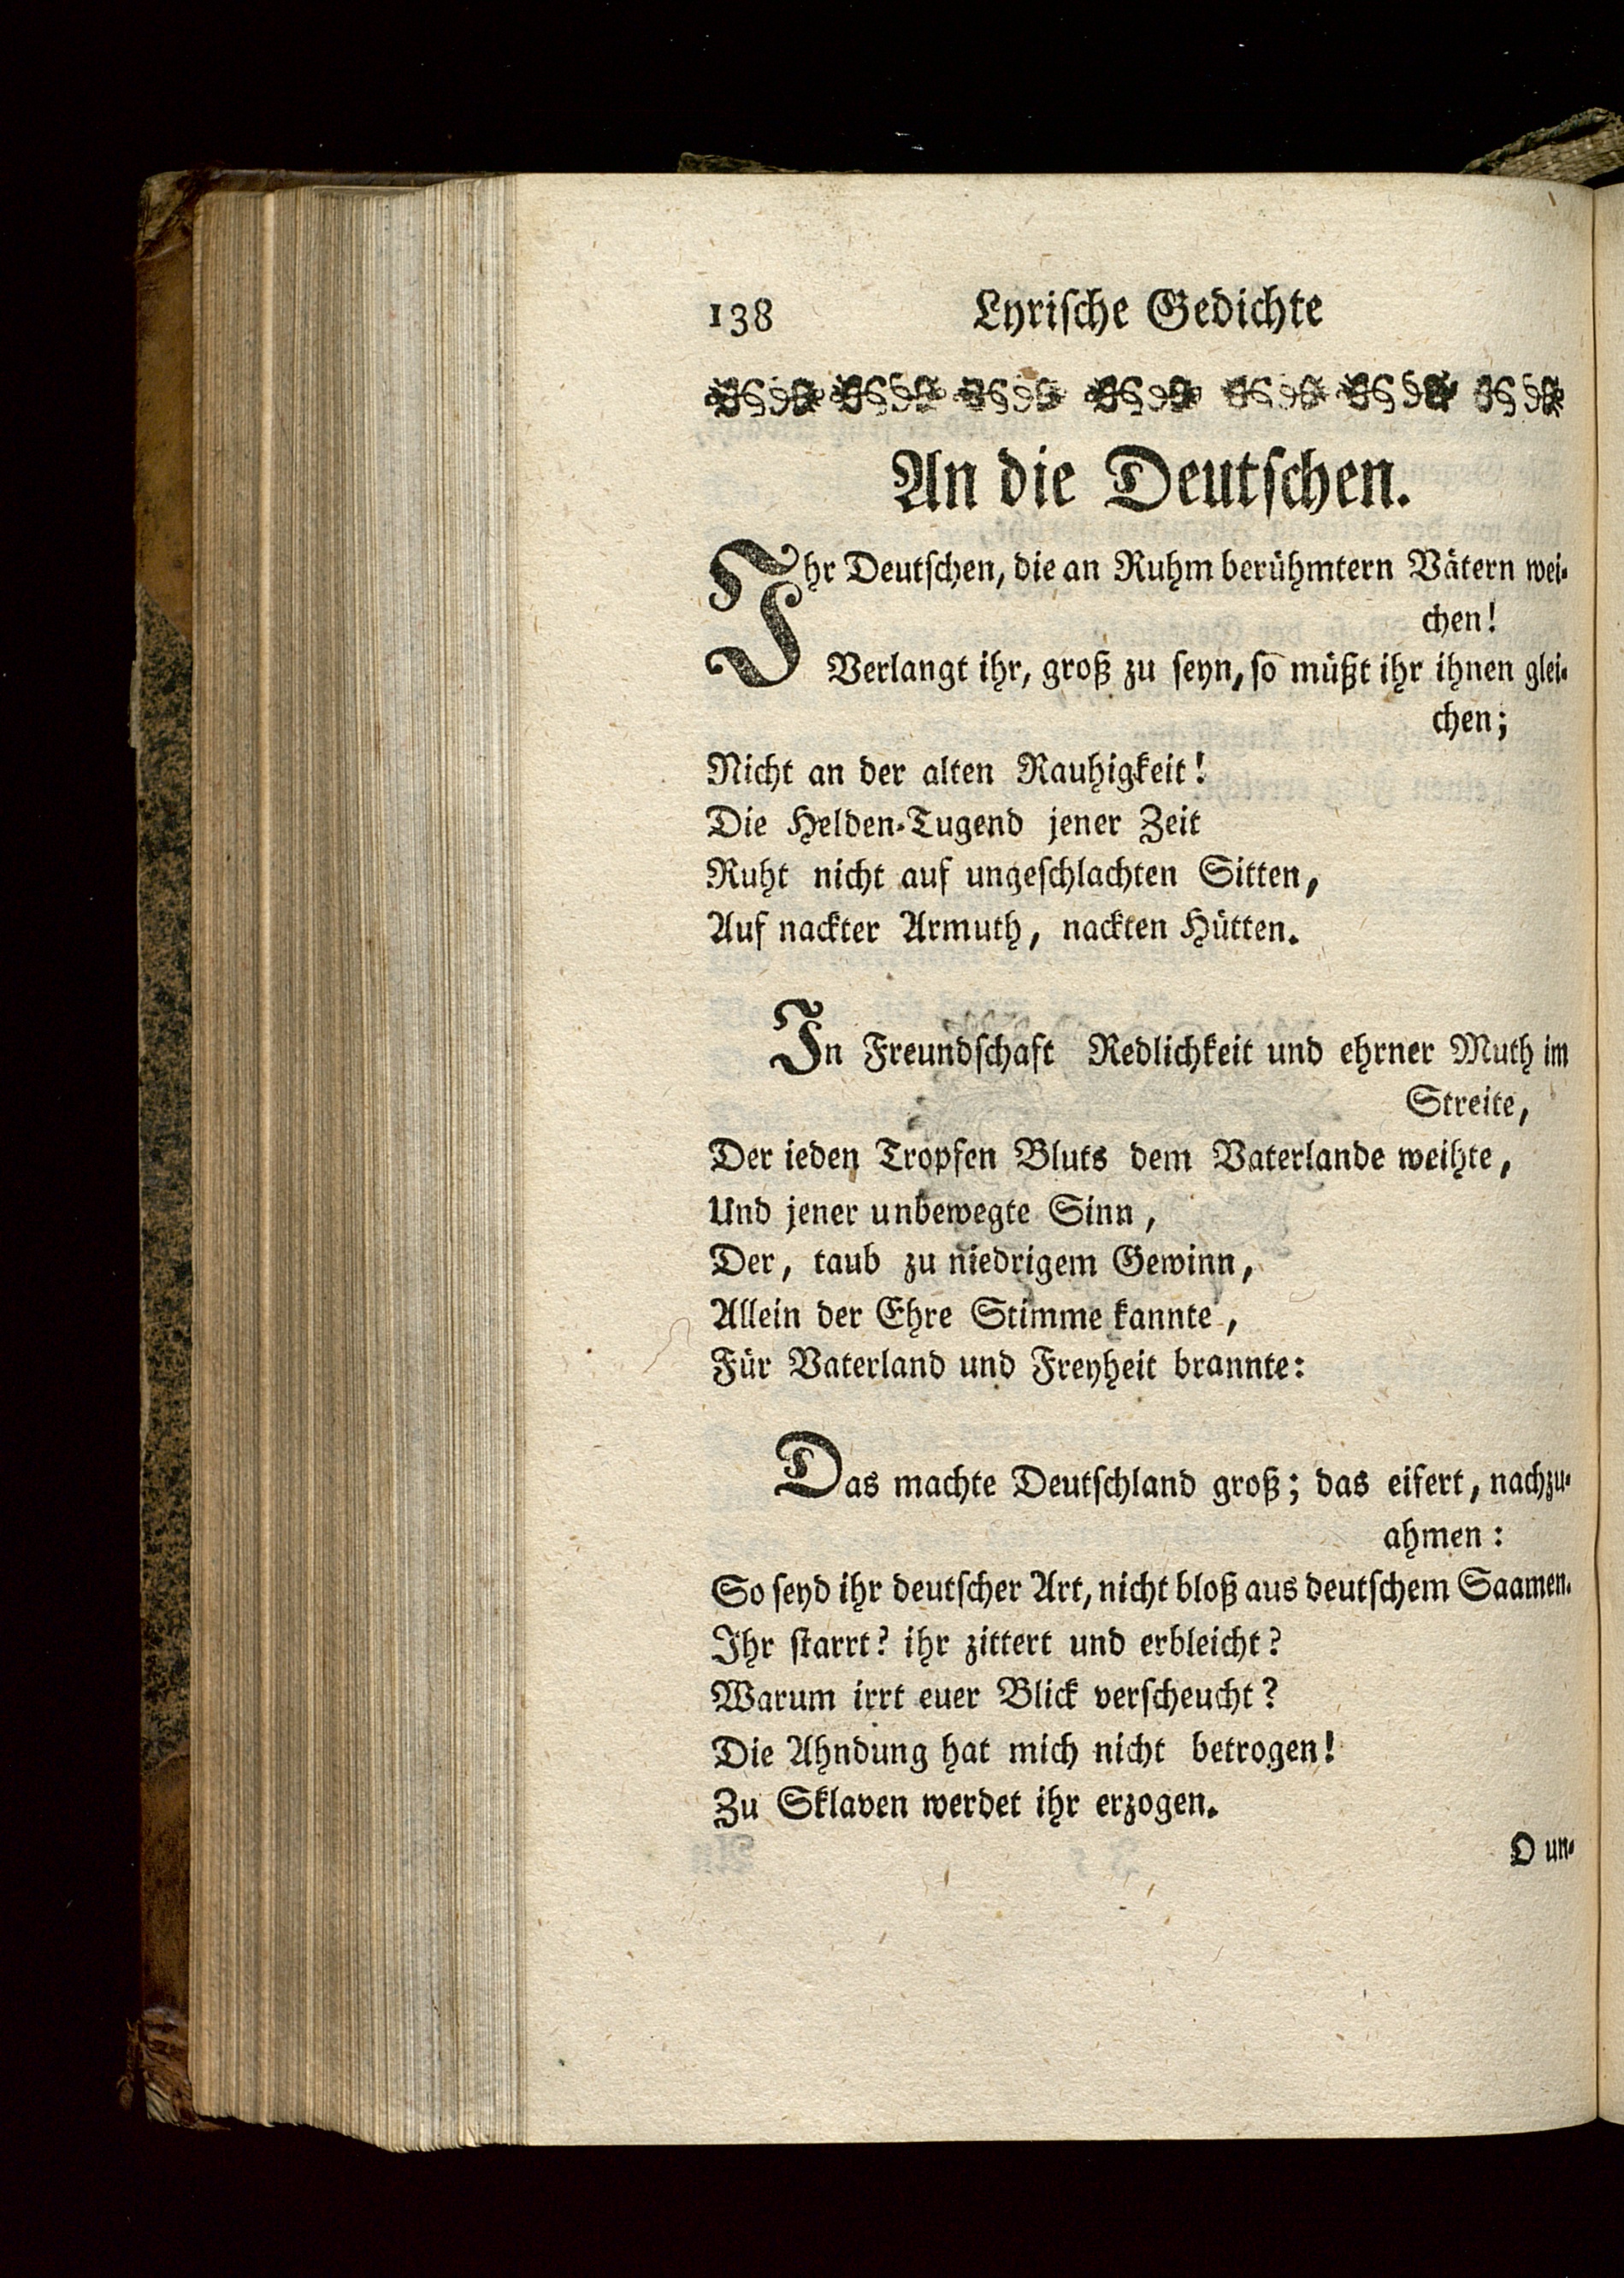 138 Lyriſche Gedichte
An die Deutſchen.
Ihr Deutſchen, die an Ruhm berühmtern Vätern wei-
chen!
Verlangt ihr, groß zu ſeyn, ſo müßt ihr ihnen glei-
chen;
Nicht an der alten Rauhigkeit!
Die Helden-Tugend jener Zeit
Ruht nicht auf ungeſchlachten Sitten,
Auf nackter Armuth, nackten Hütten.
In Freundſchaft Redlichkeit und ehrner Muth im
Streite,
Der ieden Tropfen Bluts dem Vaterlande weihte,
Und jener unbewegte Sinn,
Der, taub zu niedrigem Gewinn,
Allein der Ehre Stimme kannte,
Für Vaterland und Freyheit brannte:
Das machte Deutſchland groß; das eifert, nachzu-
ahmen:
So ſeyd ihr deutſcher Art, nicht bloß aus deutſchem Saamen.
Ihr ſtarrt? ihr zittert und erbleicht?
Warum irrt euer Blick verſcheucht?
Die Ahndung hat mich nicht betrogen!
Zu Sklaven werdet ihr erzogen.
O un-